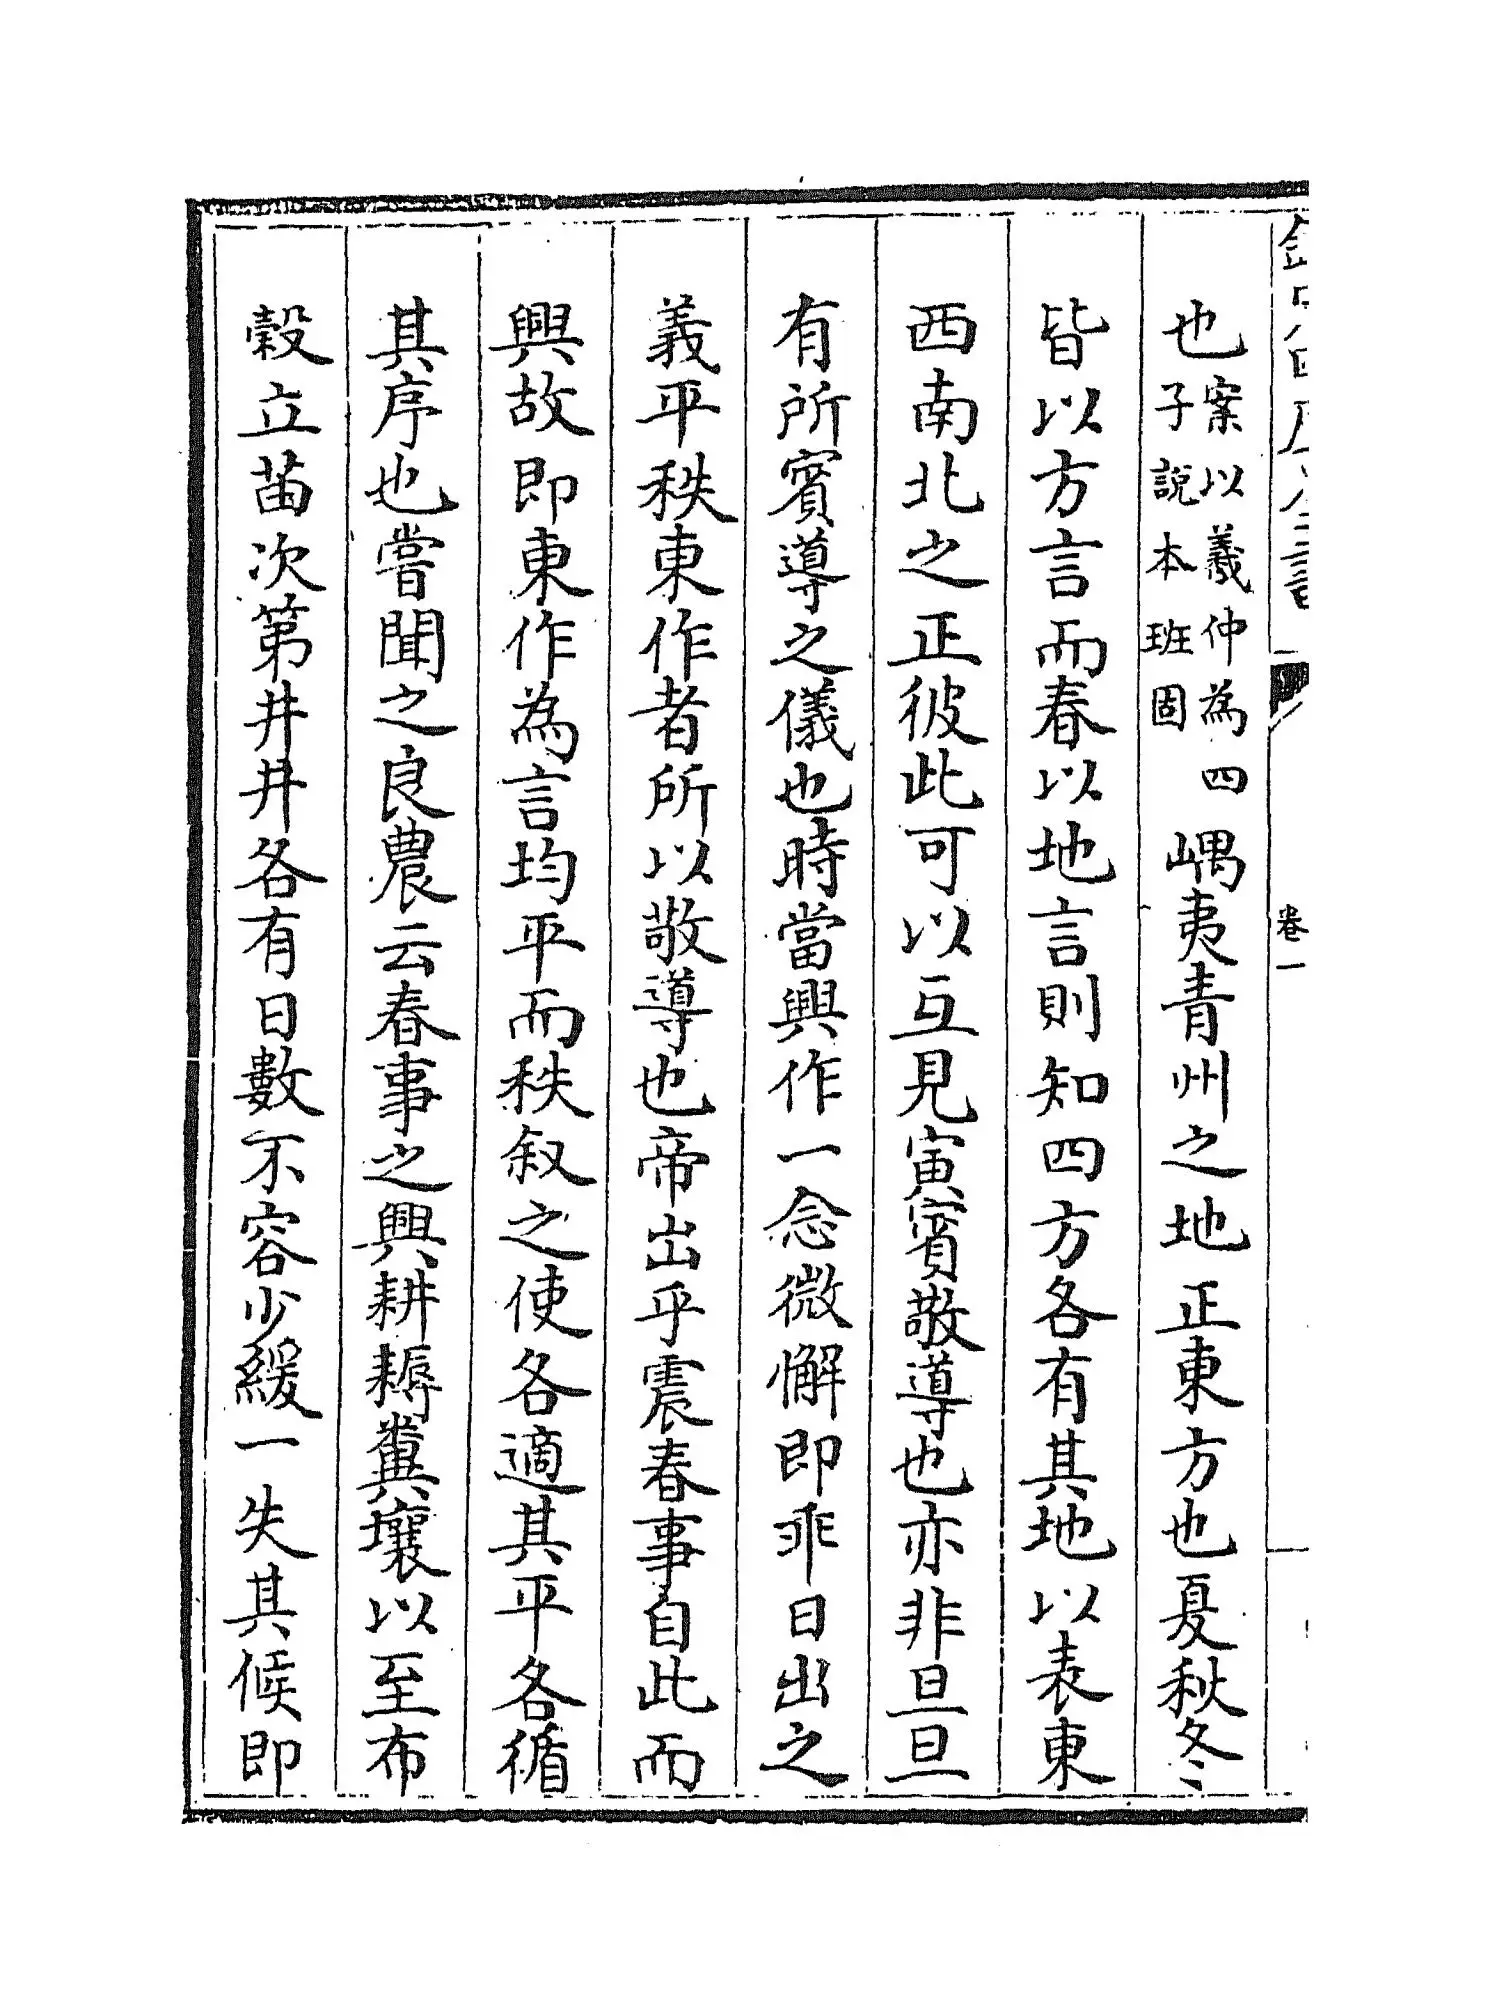 欽定四庫全書 卷一
也案以羲仲為四子說本班固嵎夷青州之地正東方也夏秋冬
皆以方言而春以地言則知四方各有其地以表東
西南北之正彼此可以互見寅賓敬導也亦非旦旦
有所賓導之儀也時當興作一念微懈即乖日出之
義平秩東作者所以敬導也帝出乎震春事自此而
興故即東作為言均平而秩叙之使各適其平各循
其序也嘗聞之良農云春事之興耕耨糞壤以至布
穀立苗次第井井各有日數不容少緩一失其候即